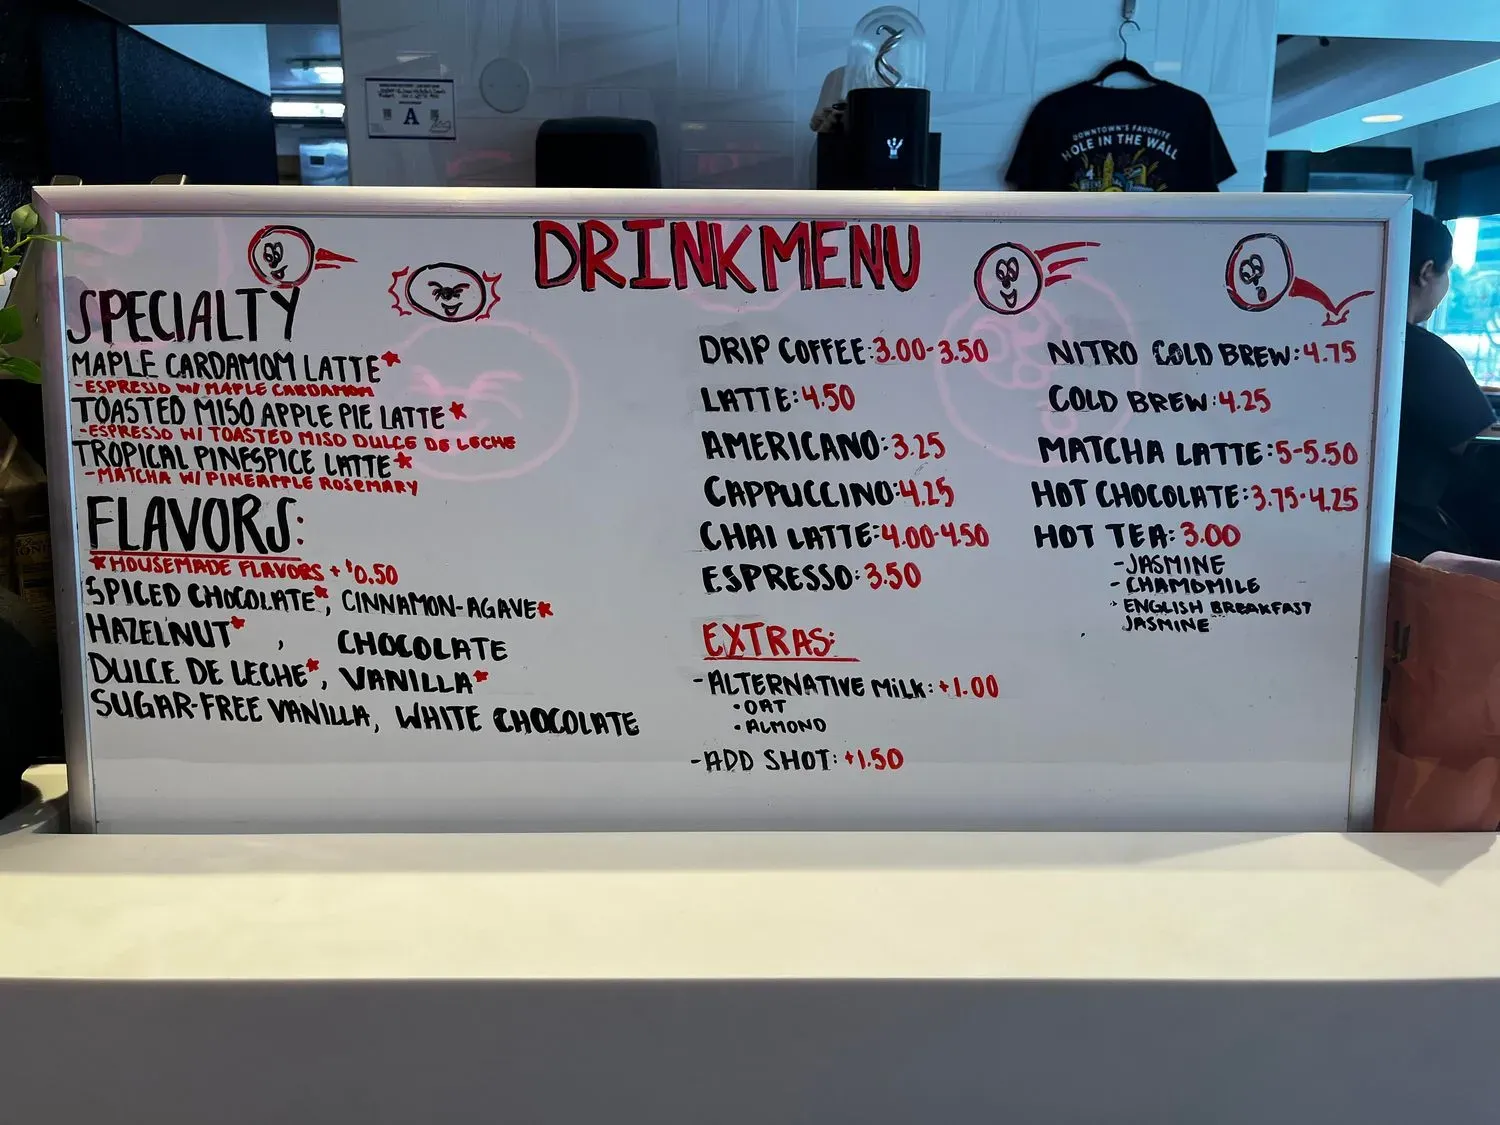 A
DOWNTOWN'S FAVORITE
HOLE IN THE WALL
DRINK MENU
SPECIALTY
MAPLE CARDAMOM LATTE*
-ESPRESSO W/ MAPLE CARDAMOM
TOASTED MISO APPLE PIE LATTE*
-ESPRESSO W/ TOASTED MISO DULCE DE LECHE
TROPICAL PINESPICE LATTE*
-MATCHA W/ PINEAPPLE ROSEMARY
FLAVORS:
*HOUSEMADE FLAVORS + $0.50
SPICED CHOCOLATE*, CINNAMON-AGAVE*
HAZELNUT*, CHOCOLATE
DULCE DE LECHE*, VANILLA*
SUGAR-FREE VANILLA, WHITE CHOCOLATE
DRIP COFFEE: 3.00-3.50
LATTE: 4.50
AMERICANO: 3.25
CAPPUCCINO: 4.25
CHAI LATTE: 4.00-4.50
ESPRESSO: 3.50
EXTRAS:
-ALTERNATIVE MILK: +1.00
•OAT
•ALMOND
-ADD SHOT: +1.50
NITRO COLD BREW: 4.75
COLD BREW: 4.25
MATCHA LATTE: 5-5.50
HOT CHOCOLATE: 3.75-4.25
HOT TEA: 3.00
-JASMINE
-CHAMOMILE
• ENGLISH BREAKFAST
JASMINE